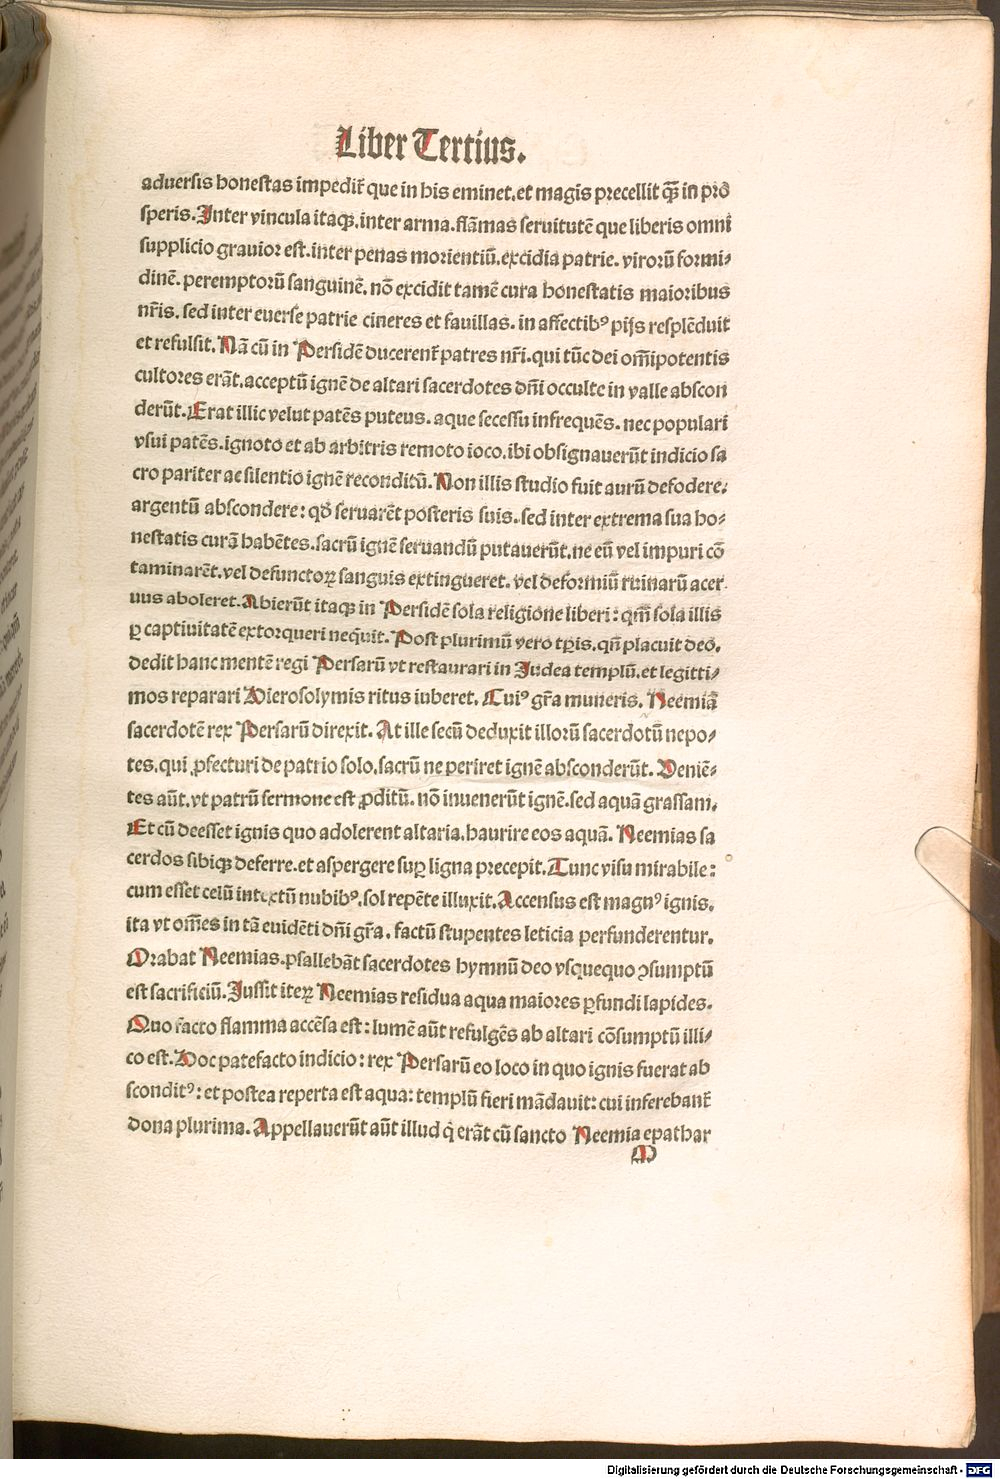 Liber Tertius.
aduersis honestas impedit̃ que in his eminet. et magis precellit q̃ꝫ in pro
speris. Inter vincula itaqꝫ. inter arma. flãmas seruitutẽ que liberis omni
supplicio grauior est. inter penas morientiũ. excidia patrie. virorũ formi⸗
dinẽ. peremptorũ sanguinẽ. nõ excidit tamẽ cura honestatis maioribus
nr̃is. sed inter euerse patrie cineres et fauillas. in affectibꝰ pijs resplẽduit
et refulsit. Nã cũ in Persidẽ ducerent̃ patres nr̃i. qui tũc dei om̃ipotentis
cultores erãt. acceptũ ignẽ de altari sacerdotes dñi occulte in valle abscon
derũt. Erat illic velut patẽs puteus. aque secessu infrequẽs. nec populari
vsui patẽs. ignoto et ab arbitris remoto ioco. ibi obsignauerũt indicio sa
cro pariter ac silentio ignẽ reconditũ. Non illis studio fuit aurũ defodere:
argentũ abscondere: qđ seruarẽt posteris suis. sed inter extrema sua ho⸗
nestatis curã habẽtes. sacrũ ignẽ seruandũ putauerũt. ne eũ vel impuri cõ
taminarẽt. vel defunctoꝝ sanguis extingueret. vel deformiũ ruinarũ acer
uus aboleret. Abierũt itaqꝫ in Persidẽ sola religione liberi: qm̃ sola illis
ꝑ captiuitatẽ extorqueri neq̃uit. Post plurimũ vero tꝑis. qñ placuit deo.
dedit hanc mentẽ regi Persarũ vt restaurari in Iudea templũ. et legitti⸗
mos reparari Hierosolymis ritus iuberet. Cuiꝰ gr̃a muneris. Neemiã
sacerdotẽ rex Persarũ direxit. At ille secũ deduxit illorũ sacerdotũ nepo⸗
tes. qui ꝓfecturi de patrio solo. sacrũ ne periret ignẽ absconderũt. Veniẽ⸗
tes aũt. vt patrũ sermone est ꝓditũ. nõ inuenerũt ignẽ. sed aquã grassam.
Et cũ deesset ignis quo adolerent altaria. haurire eos aquã. Neemias sa
cerdos sibiqꝫ deferre. et aspergere suꝑ ligna precepit. Tunc visu mirabile:
cum esset celũ intextũ nubibꝰ. sol repẽte illuxit. Accensus est magnꝰ ignis.
ita vt om̃es in tã euidẽti dñi gr̃a. factũ stupentes leticia perfunderentur.
Orabat Neemias. psallebãt sacerdotes hymnũ deo vsquequo ꝯsumptũ
est sacrificiũ. Iussit iteꝝ Neemias residua aqua maiores ꝑfundi lapides.
Quo facto flamma accẽsa est: lumẽ aũt refulgẽs ab altari cõsumptũ illi⸗
co est. Hoc patefacto indicio: rex Persarũ eo loco in quo ignis fuerat ab
sconditꝰ: et postea reperta est aqua: templũ fieri mãdauit: cui inferebant̃
dona plurima. Appellauerũt aũt illud q̇ erãt cũ sancto Neemia epathar
M
Digitalisierung gefördert durch die Deutsche Forschungsgemeinschaft - DFG